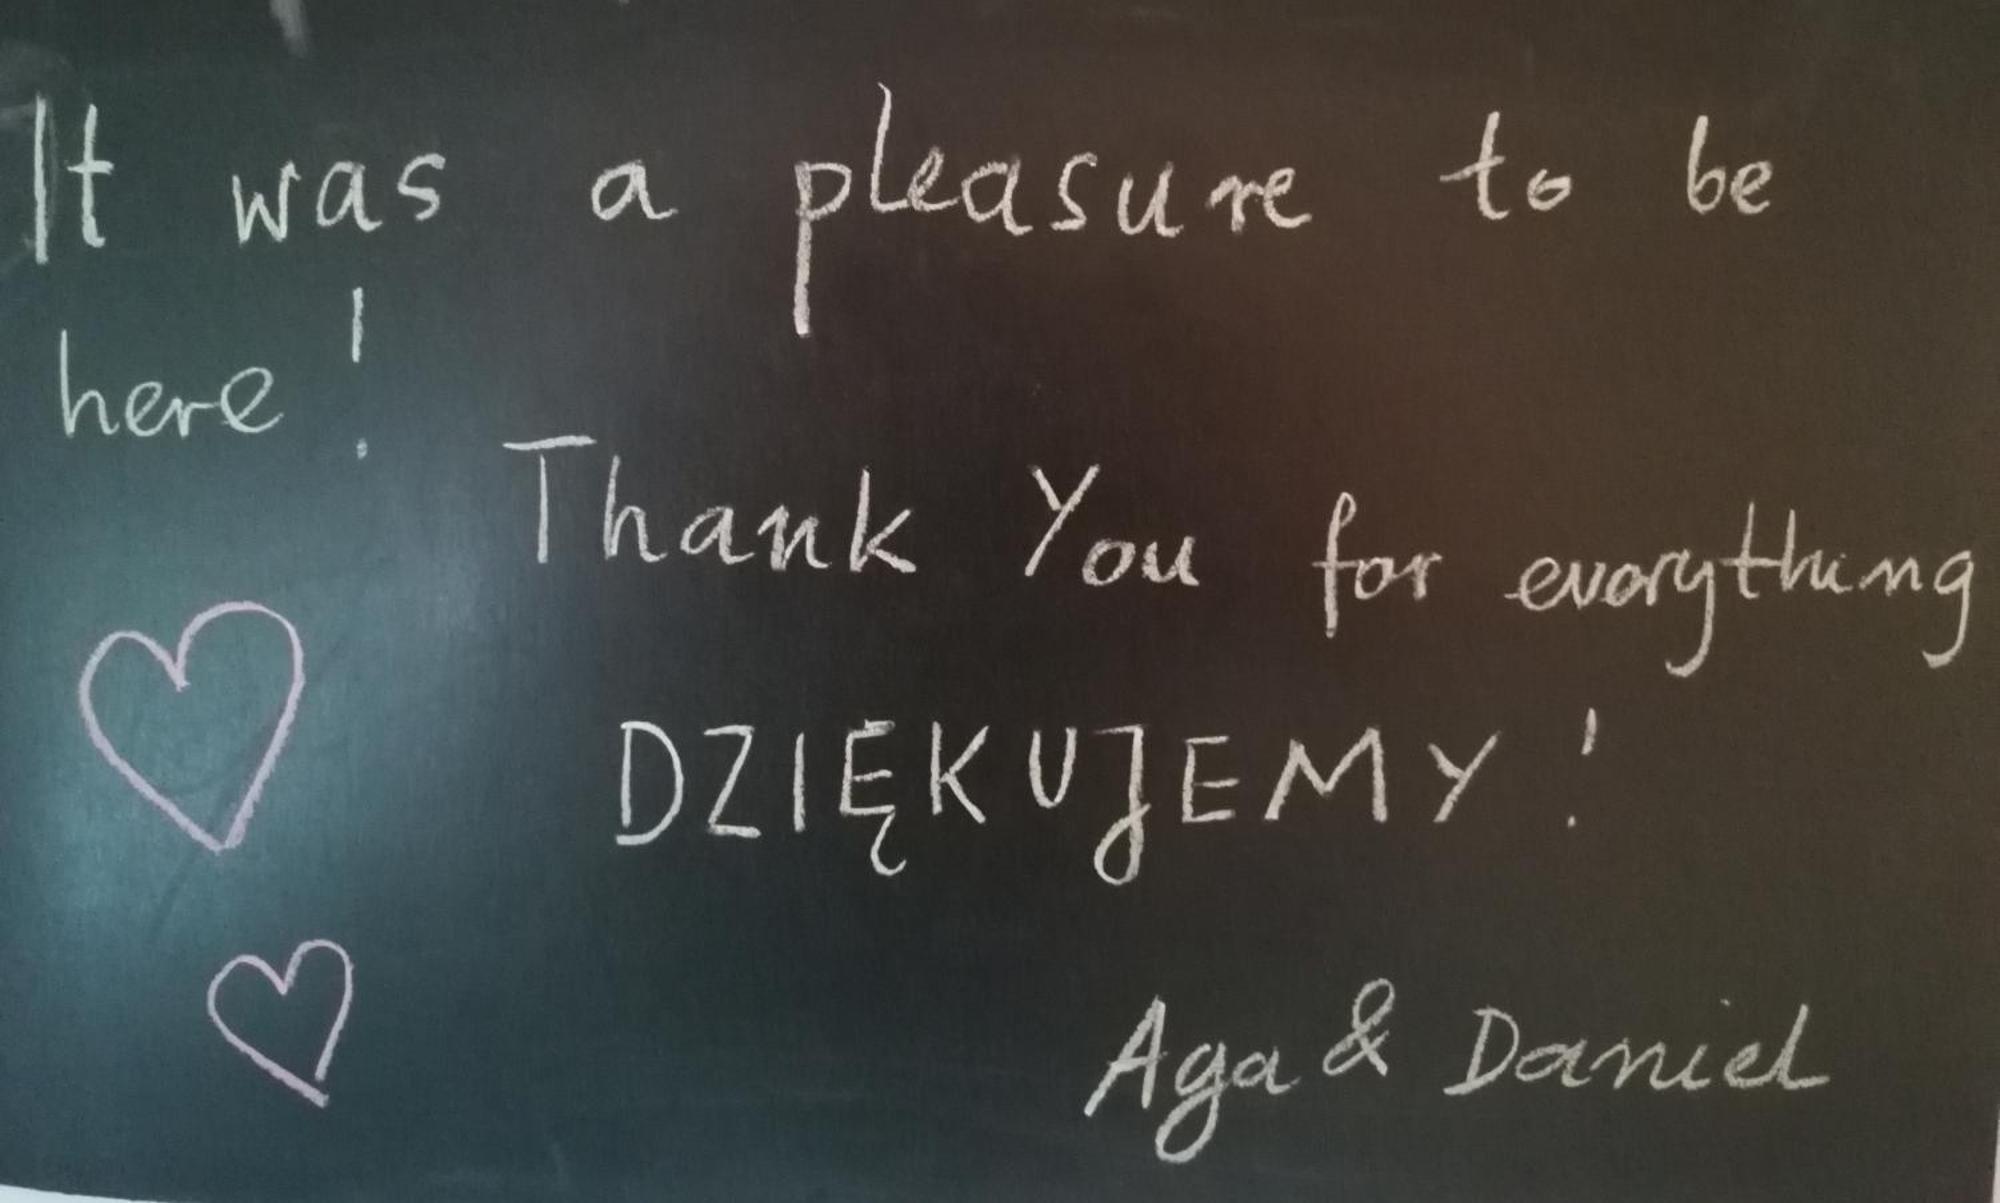 It was a pleasure to be
here!
Thank You for everything
DZIĘKUJEMY!
Aga & Daniel